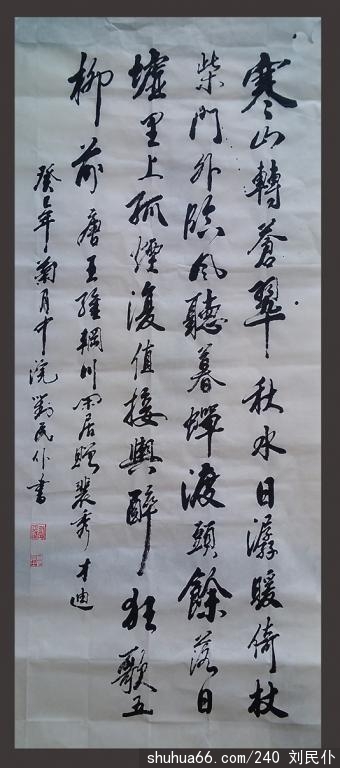 寒山轉蒼翠秋水日潺暖倚杖
柴門外臨風聽暮蟬渡頭餘落日
墟里上孤煙復值接輿醉狂歌五
柳前唐王維輞川閑居贈裴秀才迪
癸巳年菊月中浣劉民仆書
shuhua66.com/240 刘民仆